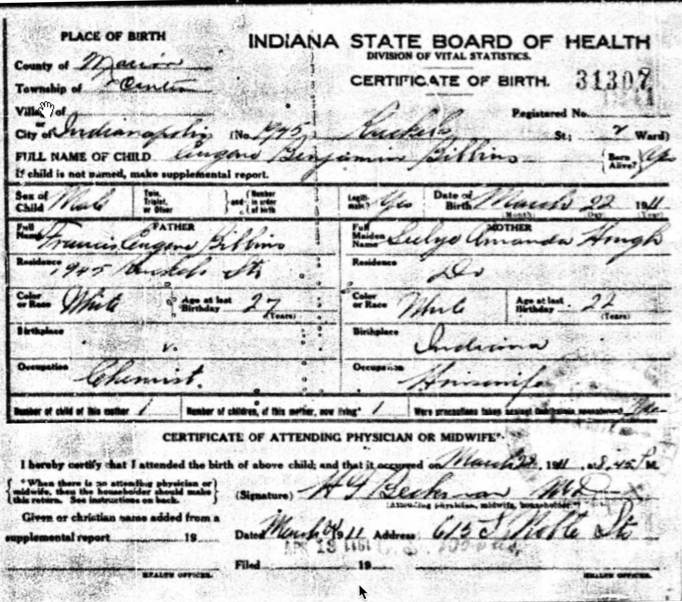 PLACE OF BIRTH
INDIANA STATE BOARD OF HEALTH
DIVISION OF VITAL STATISTICS.
County of Marion
CERTIFICATE OF BIRTH. 31307
Township of Center
Village of
Registered No.
City of Indianapolis (No. 1945 St; Ward)
FULL NAME OF CHILD Eugene Benjamin Bibbins {Born Alive? Yes
If child is not named, make supplemental report.
Sex of Child Male Twin, Triplet, or Other and Number in order of birth Legiti- mate? Yes Date of Birth March 22 1911
(Month) (Day) (Year)
FATHER MOTHER
Full Name Francis Eugene Bibbins Full Maiden Name Amanda Hough
Residence 1945 St Residence Do
Color or Race White Age at last Birthday 27 (Years) Color or Race White Age at last Birthday 22 (Years)
Birthplace Birthplace Indiana
Occupation Chemist. Occupation Housewife
Number of child of this mother 1 Number of children, of this mother, now living 1 Were precautions taken against
CERTIFICATE OF ATTENDING PHYSICIAN OR MIDWIFE*
I hereby certify that I attended the birth of above child; and that it occurred on March 22, 1911, at 8.45 P M.
{*When there is no attending physician or midwife, then the householder should make this return. See instructions on back.}
(Signature) MD
(Attending physician, midwife, householder.*)
Given or christian name added from a
supplemental report 19
Dated March 1911 Address 615 Noble St
Filed 19
HEALTH OFFICER. HEALTH OFFICER.